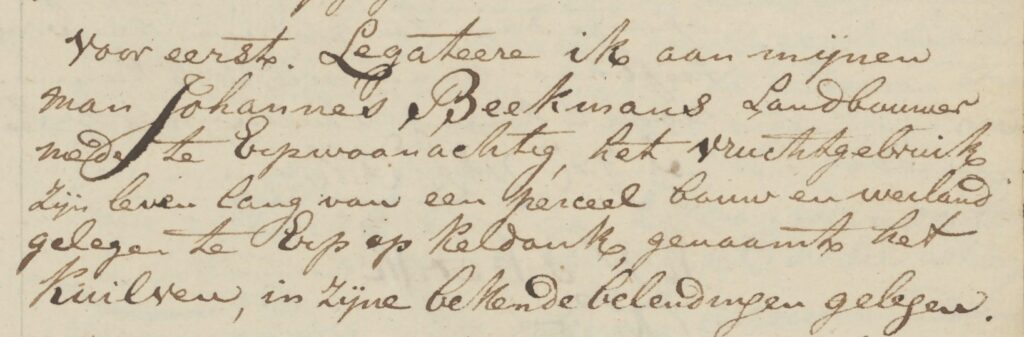 Voor eerst. Legateere ik aan mijnen
man Johannes Beekmans Landbouwer
mede te Erp woonachtig, het vruchtgebruik
zijn leven lang van een perceel bouw en weiland
gelegen te Erp op Keldonk, genaamt het
Kuilven, in zijne bekende belendingen gelegen.